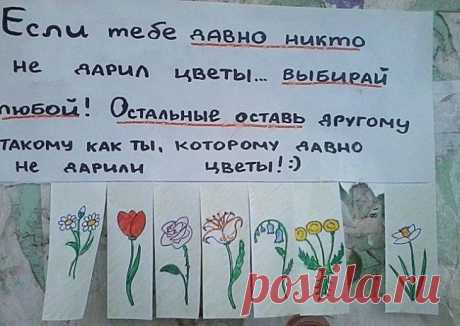 Если тебе давно никто
не дарил цветы... выбирай
любой! Остальные оставь другому
такому как ты, которому давно
не дарили цветы!:)
postila.ru